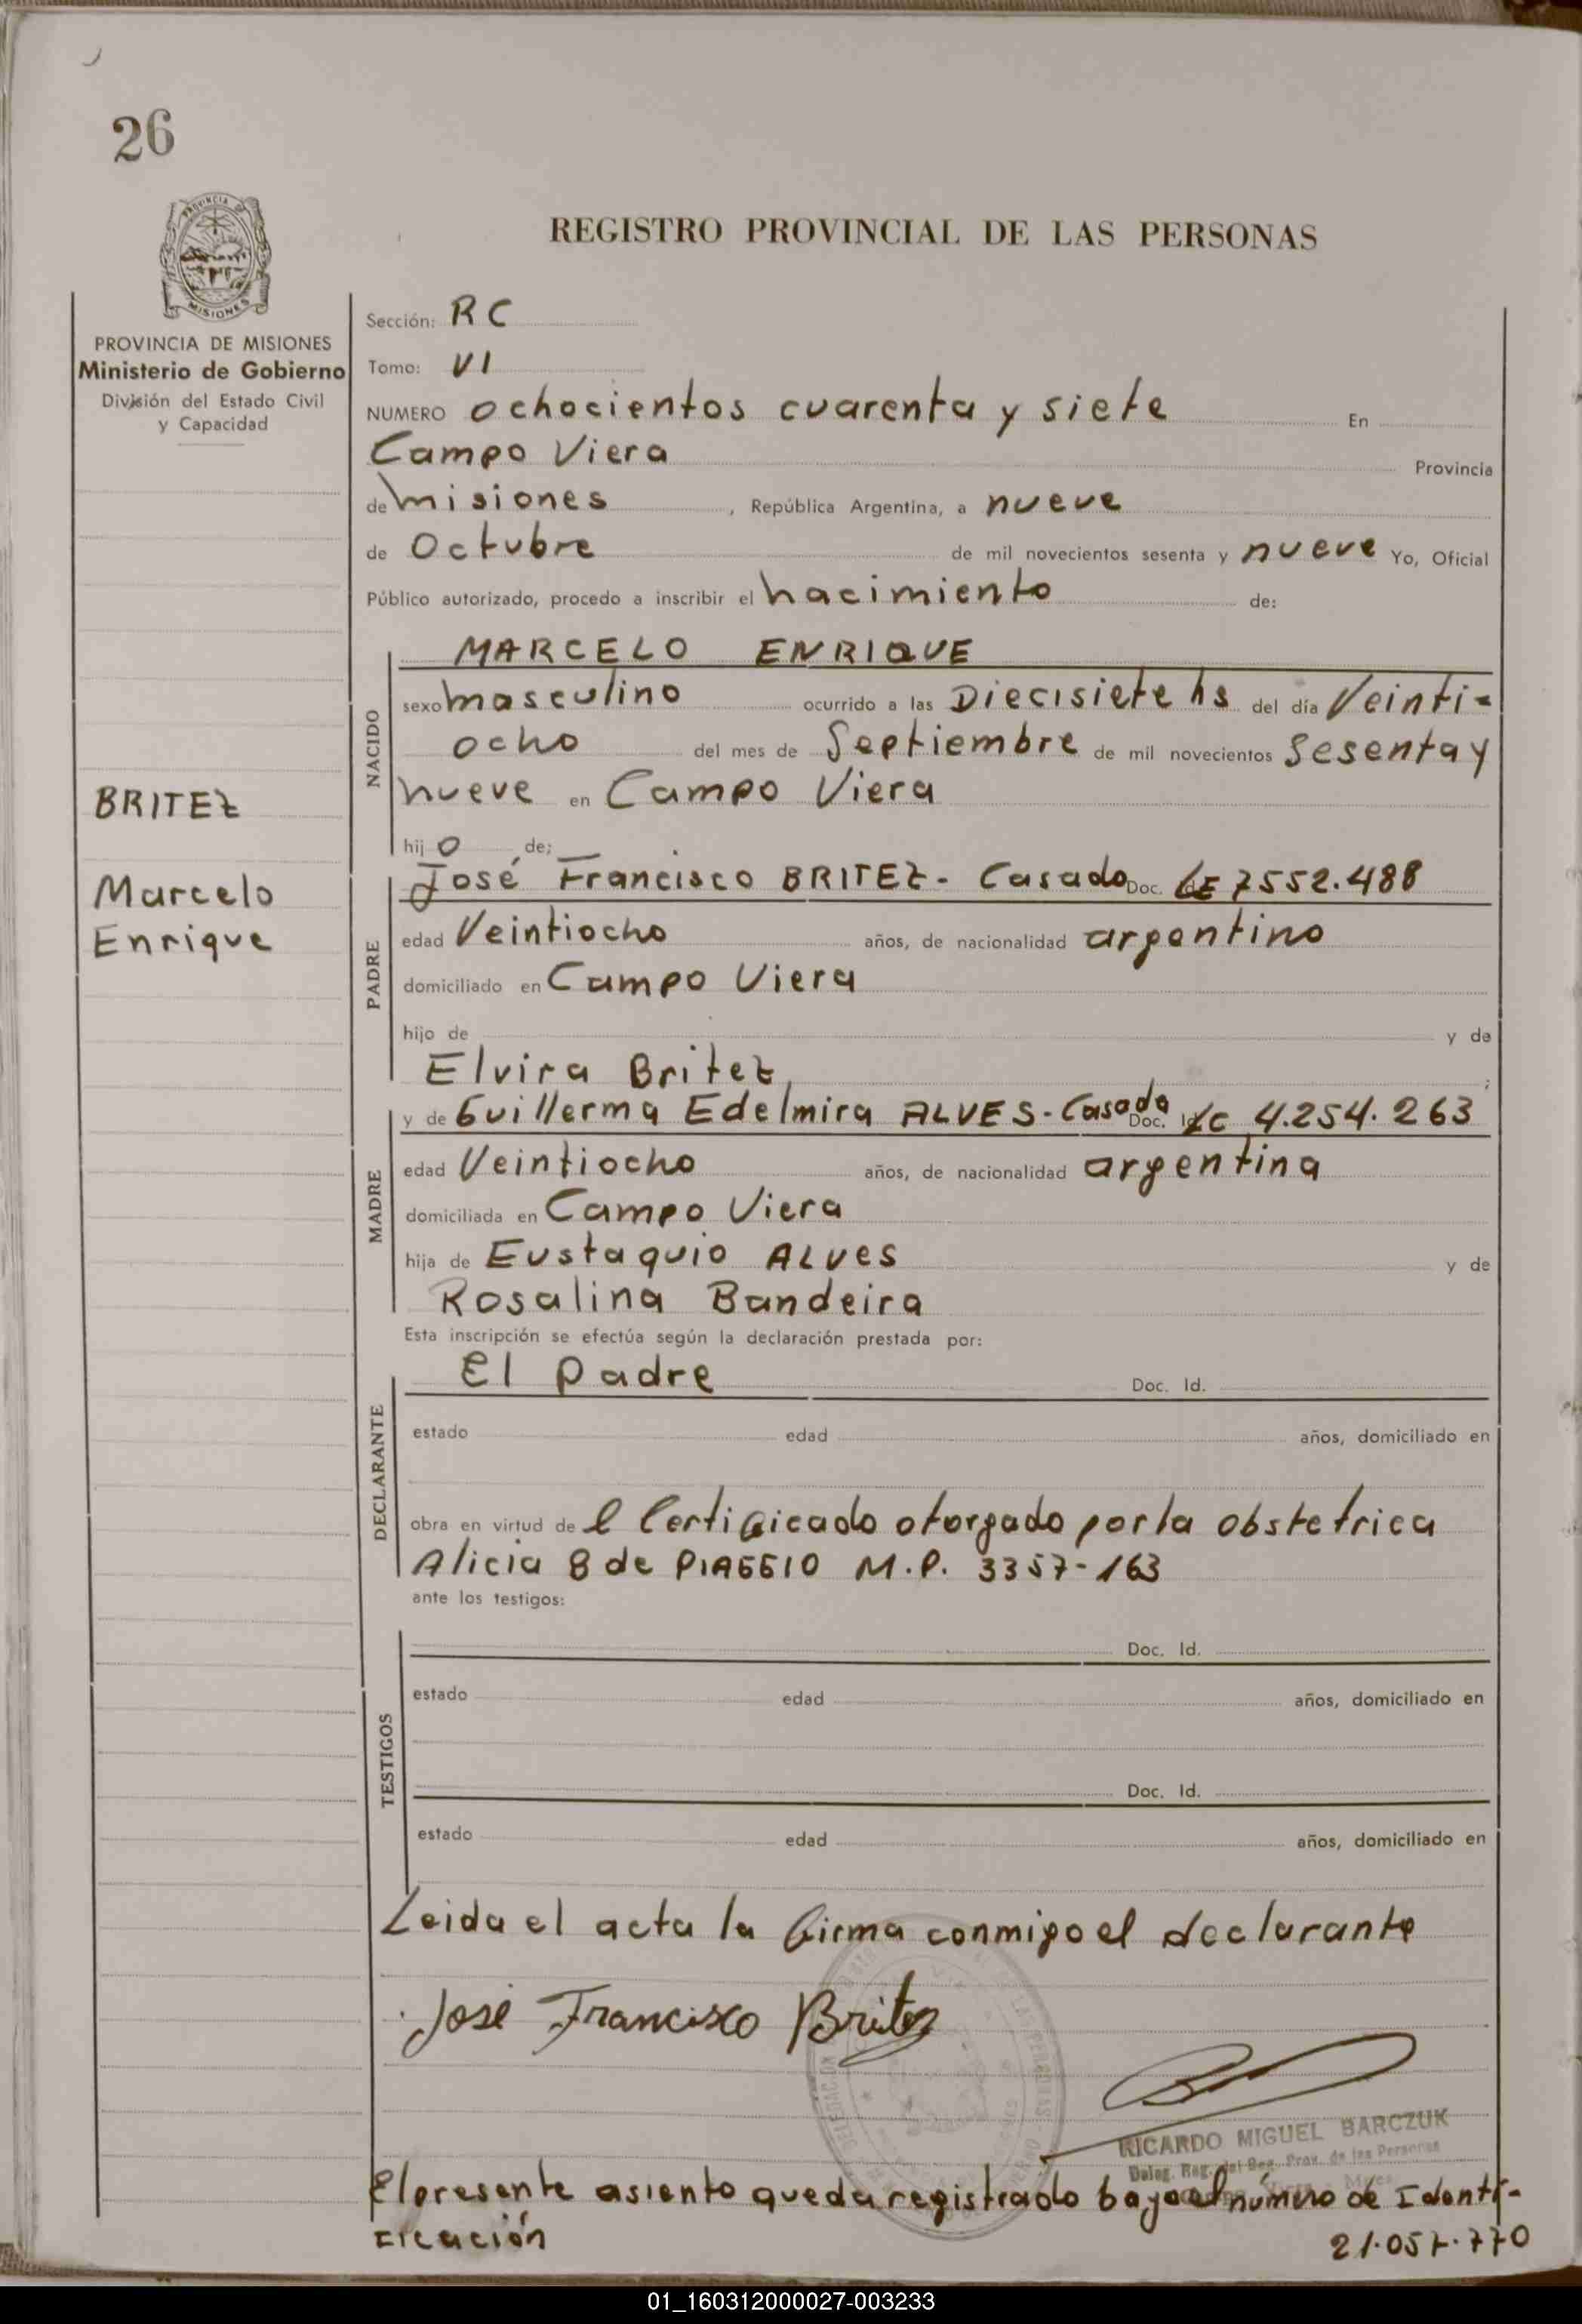 26
REGISTRO PROVINCIAL DE LAS PERSONAS
PROVINCIA DE MISIONES
Ministerio de Gobierno
División del Estado Civil
y Capacidad
Sección: RC
Tomo: VI
NUMERO ochocientos cuarenta y siete En
Campo Viera Provincia
de misiones, República Argentina, a nueve
de Octubre de mil novecientos sesenta y nueve Yo, Oficial
Público autorizado, procedo a inscribir el nacimiento de:
NACIDO
MARCELO ENRIQUE
sexo masculino ocurrido a las Diecisiete hs del día Veinti-
ocho del mes de Septiembre de mil novecientos Sesenta y
nueve en Campo Viera
hijo de:
BRITEZ
Marcelo
Enrique
PADRE
José Francisco BRITEZ- Casado Doc. LE 7552.488
edad Veintiocho años, de nacionalidad argentino
domiciliado en Campo Viera
hijo de y de
Elvira Britez
MADRE
y de Guillerma Edelmira ALVES- Casada Doc. LC 4.254.263
edad Veintiocho años, de nacionalidad argentina
domiciliada en Campo Viera
hija de Eustaquio ALVES y de
Rosalina Bandeira
Esta inscripción se efectúa según la declaración prestada por:
DECLARANTE
El padre Doc. Id.
estado edad años, domiciliado en
obra en virtud de l Certificado otorgado por la obstetrica
Alicia B de PIAGGIO M.P. 3357-163
ante los testigos:
TESTIGOS
Doc. Id.
estado edad años, domiciliado en
Doc. Id.
estado edad años, domiciliado en
Leida el acta la firma conmigo el declarante
José Francisco Britez
RICARDO MIGUEL BARCZUK
Deleg. Reg. del Reg. Prov. de las Personas
El presente asiento queda registrado bajo el número de Identi-
ficación 21.057.770
01_160312000027-003233